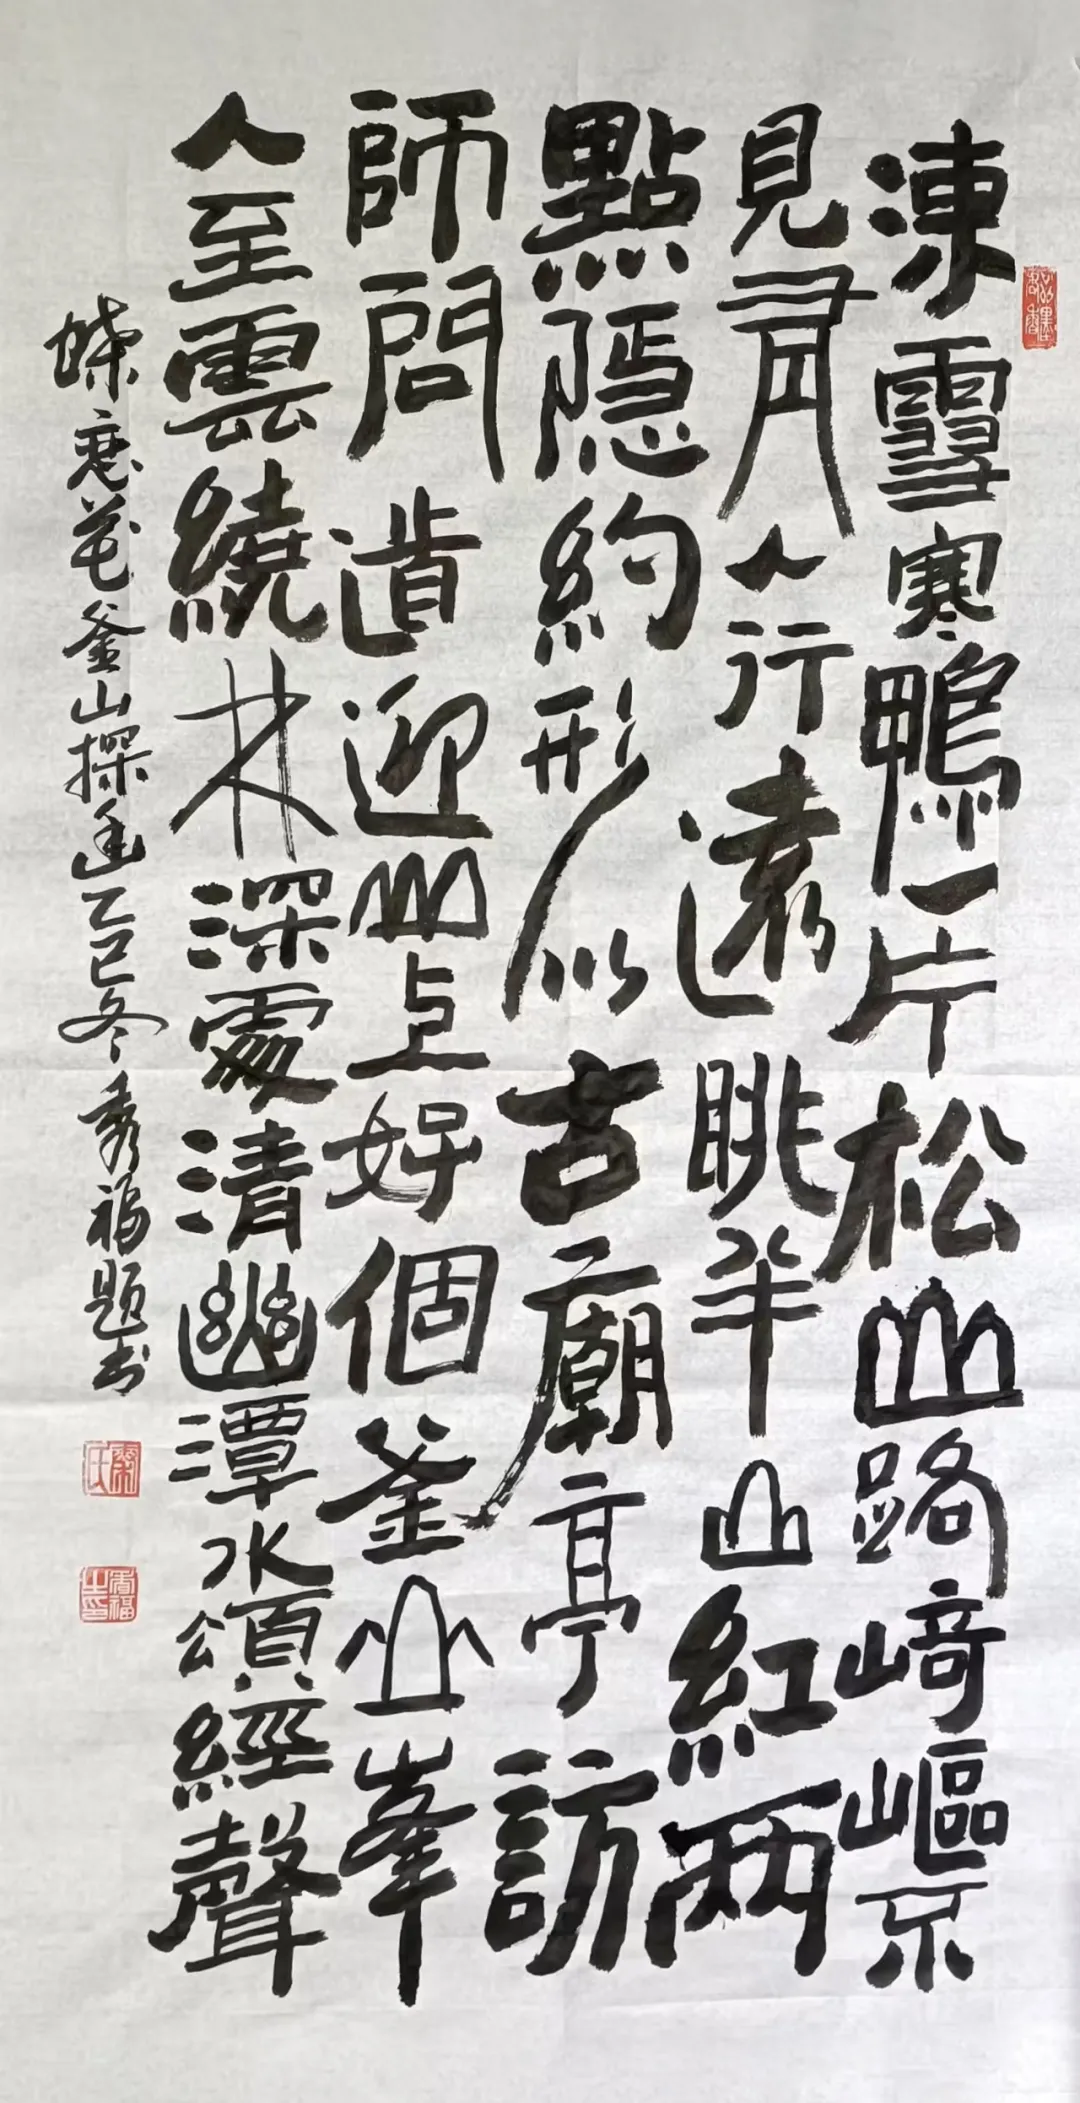 凍雪寒鴨一片松山路崎嶇不
見有人行遠眺半山紅兩
點隱約形似古廟亭訪
師問道迎山上好個釜山峯
人至雲繞林深處清幽潭水頌經聲
蝶戀花釜山探幽乙巳冬秀福題书